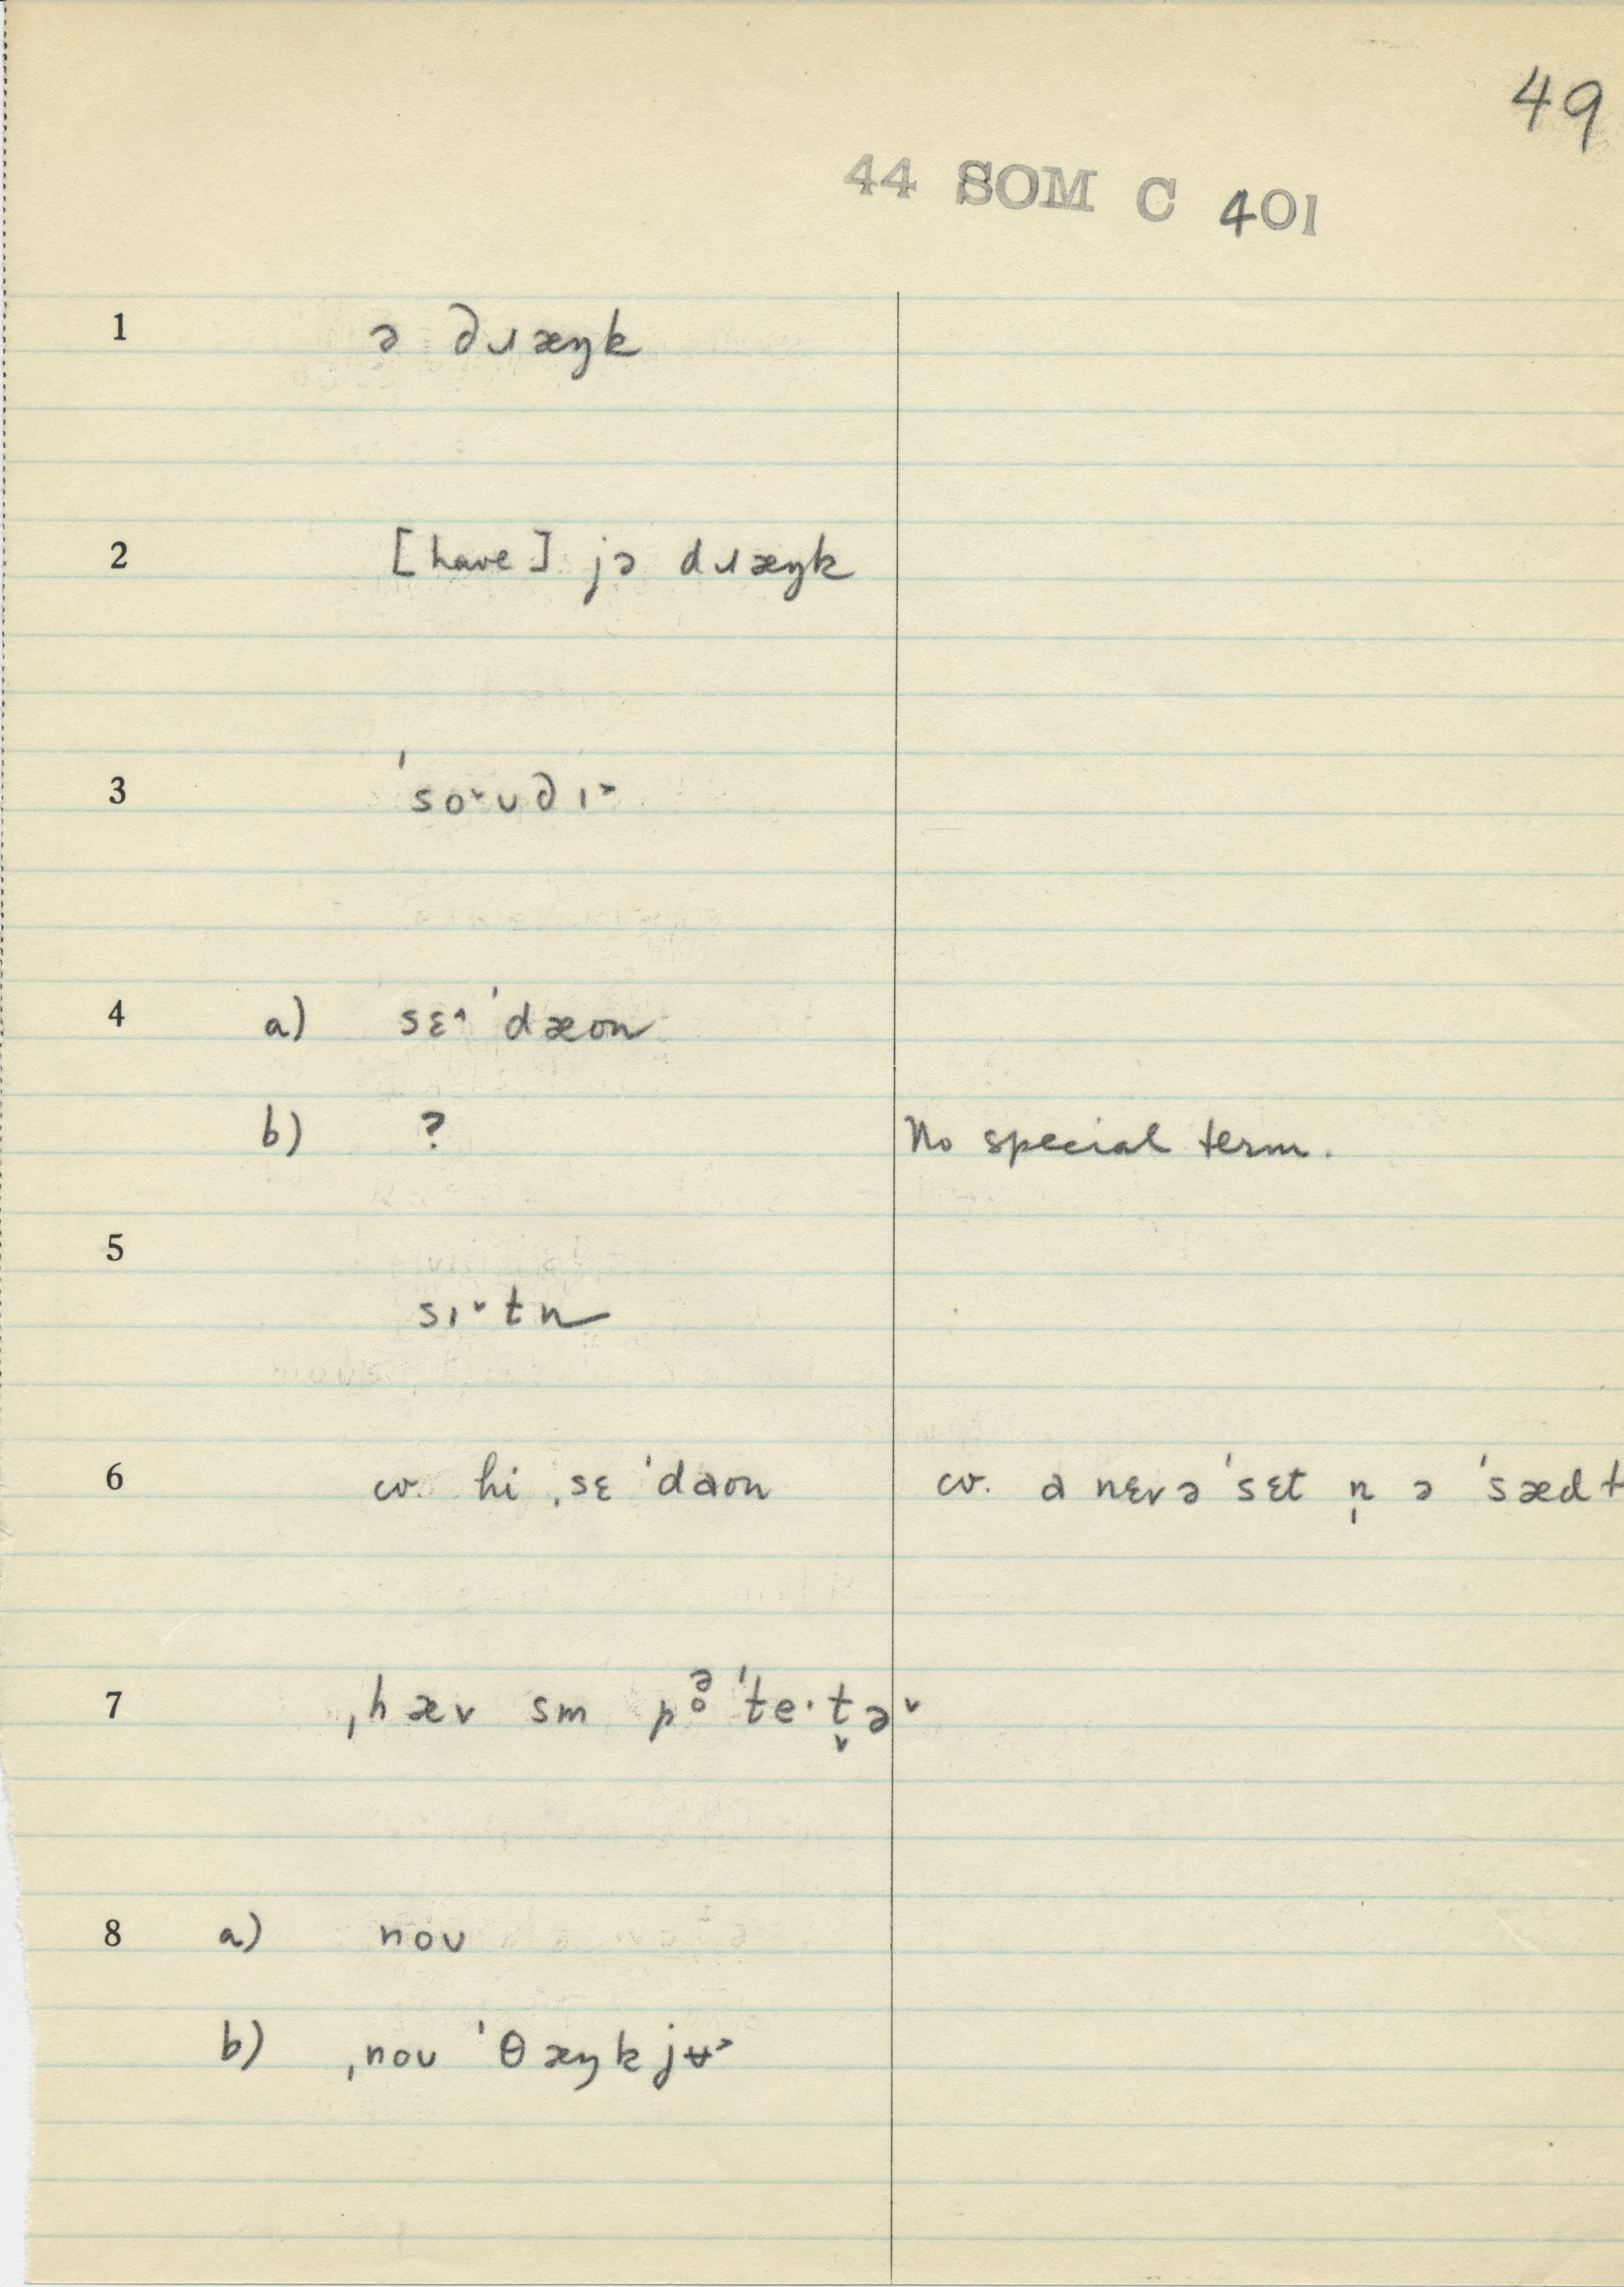 49
44 SOM C 401
1 ə ∂ɹæŋk
2 [have] jə dɹæŋk
3 ˈso˅ʊ∂ɪ˃
4 a) sɛ˄ ˈdæon
b) ? No special term.
5
sɪ˅tn
6 cv. hi ˌsɛ ˈdaon cv. a nɛvə ˈsɛt n̩ ə ˈsæd t
7 ˌhæv sm pə̥ ˈte·t̬ə˅
8 a) noʊ
b) ˌnoʊ ˈθæŋkjʉ˃